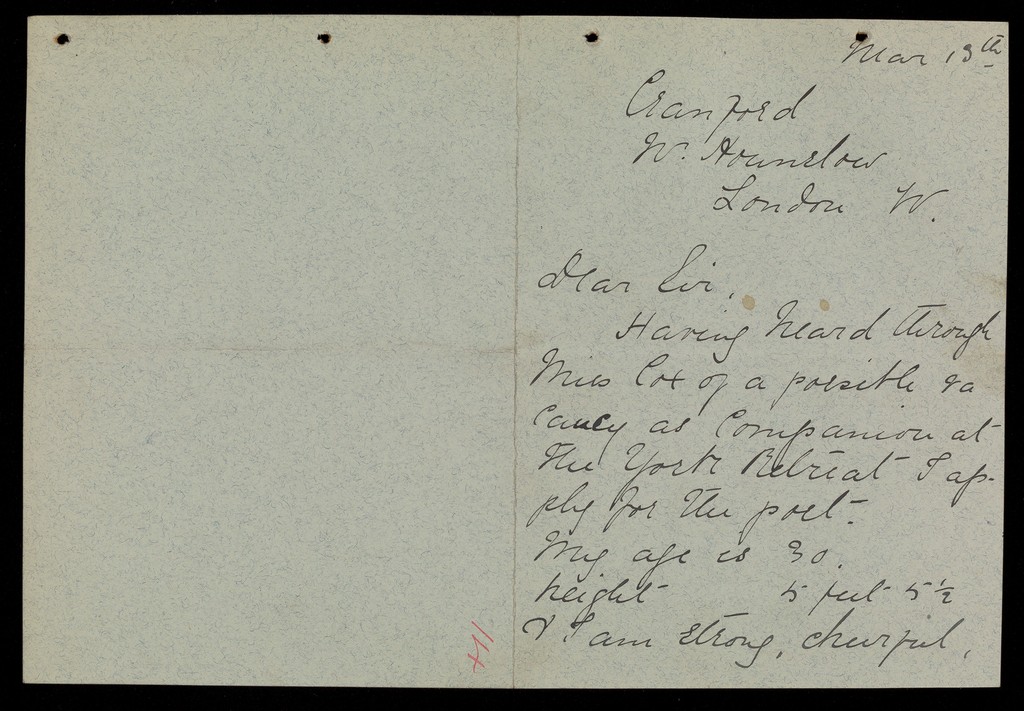 Mar 13th
Cranford
W. Hounslow
London W.
Dear Sir,
Having heard through
Miss Cox of a possible va
cancy as Companion at
the York Retreat I ap-
ply for the post.
My age is 30.
height 5 feet 5 ½
& I am strong, cheerful,